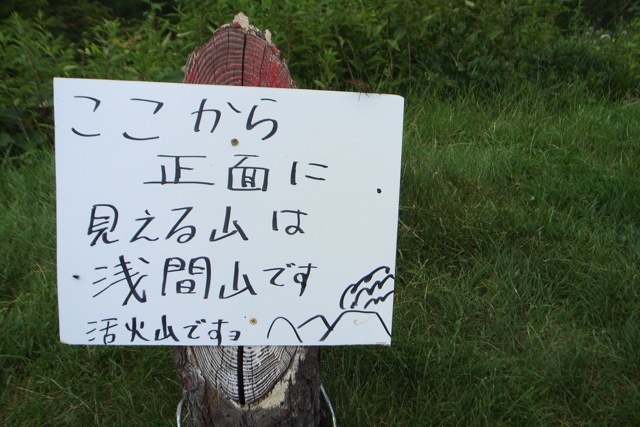 ここから
正面に
見える山は
浅間山です
活火山ですョ